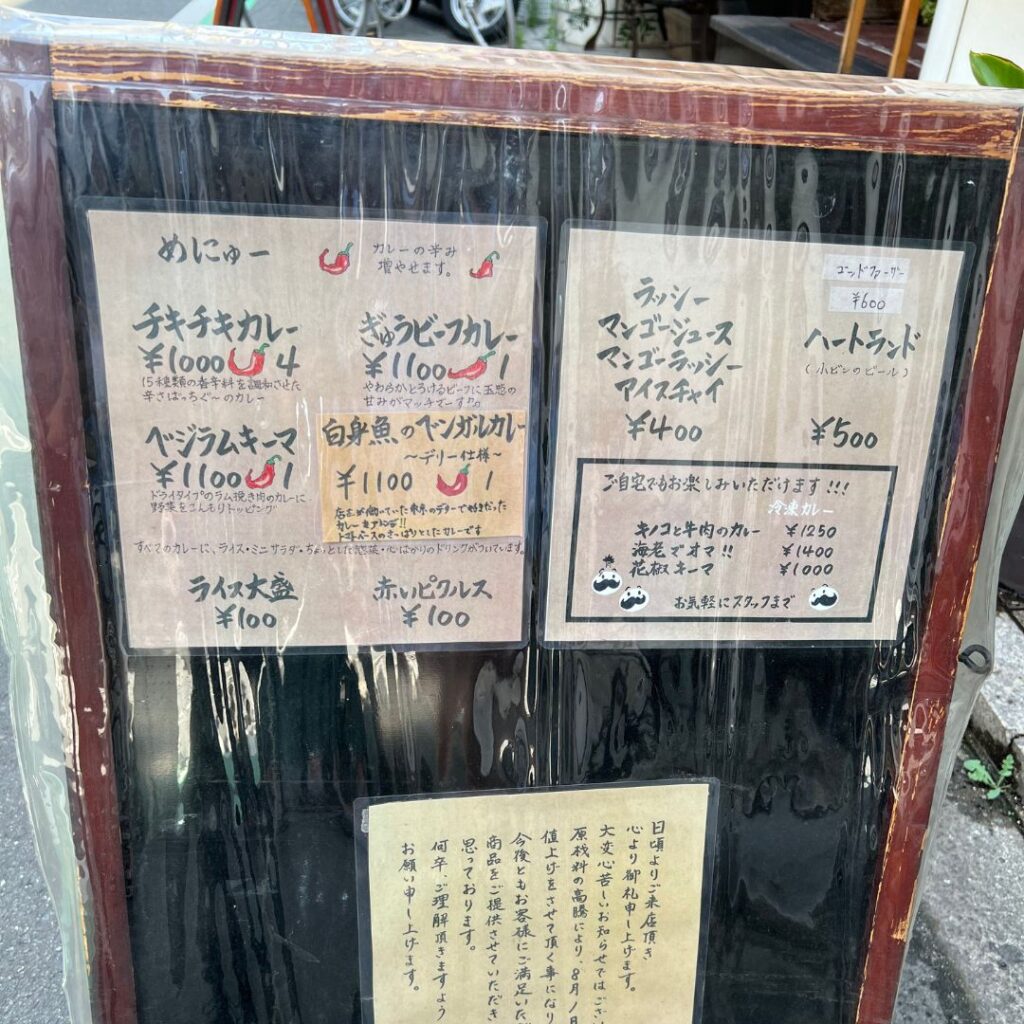 めにゅー
カレーの辛み
増やせます。
チキチキカレー
¥1000 4
15種類の香辛料を調和させた
辛さばっちぐ〜のカレー
ぎゅうビーフカレー
¥1100 1
やわらかとろけるビーフに玉葱の
甘みがマッチマーす♪。
ベジラムキーマ
¥1100 1
ドライタイプのラム挽き肉のカレーに
野菜をこんもりトッピング
白身魚のベンガルカレー
〜デリー仕様〜
¥1100 1
店主が働いていた
カレーをアレンジ!!
トマトベースのさっぱりとしたカレーです
すべてのカレーに、ライス・ミニサラダ・ちょっとした惣菜・心ばかりのドリンクがついています。
ライス大盛
¥100
赤いピクルス
¥100
ラッシー
マンゴージュース
マンゴーラッシー
アイスチャイ
¥400
ゴッドファーザー
¥600
ハートランド
(小ビンのビール)
¥500
ご自宅でもお楽しみいただけます!!!
冷凍カレー
キノコと牛肉のカレー ¥1250
海老でオマ!! ¥1400
花椒キーマ ¥1000
お気軽にスタッフまで
日頃よりご来店頂き
心より御礼申し上げます。
大変心苦しいお知らせではござい
原材料の高騰により、8月1日
値上げをさせて頂く事になり
今後ともお客様にご満足いただ
商品をご提供させていただき
思っております。
何卒、ご理解頂きますよう
お願い申し上げます。